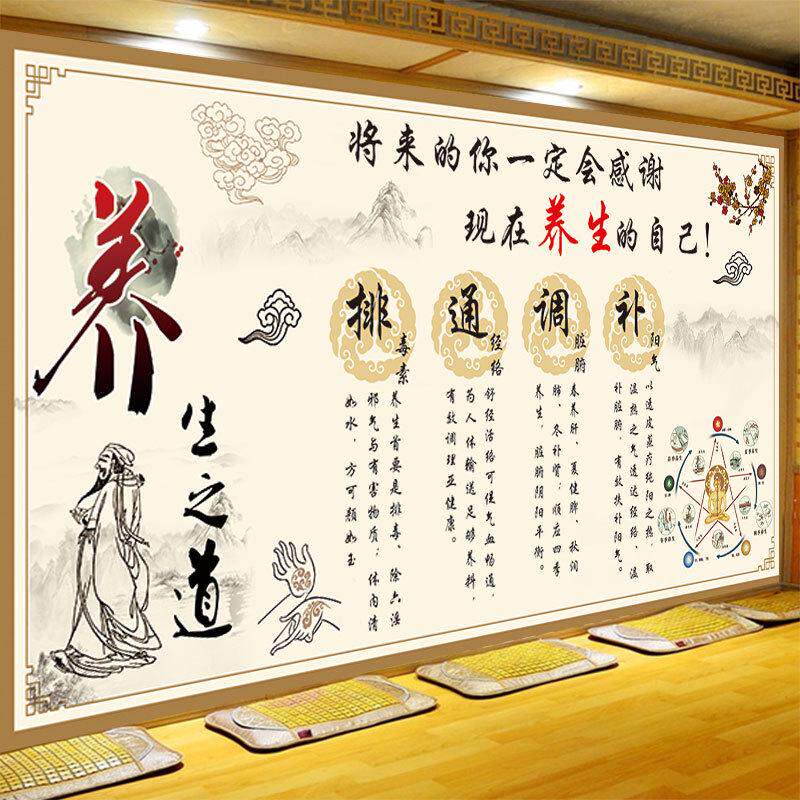 将来的你一定会感谢
现在养生的自己!
养
生之道
排
毒素
养生首要是排毒、除六淫
邪气与有害物质;体内清
如水,方可颜如玉
通
经络
舒经活络可使气血畅通,
为人体输送足够养料,
有效调理亚健康。
调
脏腑
春养肝、夏健脾、秋润
肺、冬补肾;顺应四季
养生,脏腑阴阳平衡。
补
阳气
以透皮蒸疗纯阳之热,取
温热之气透达经络、温
补脏腑,有效扶补阳气。